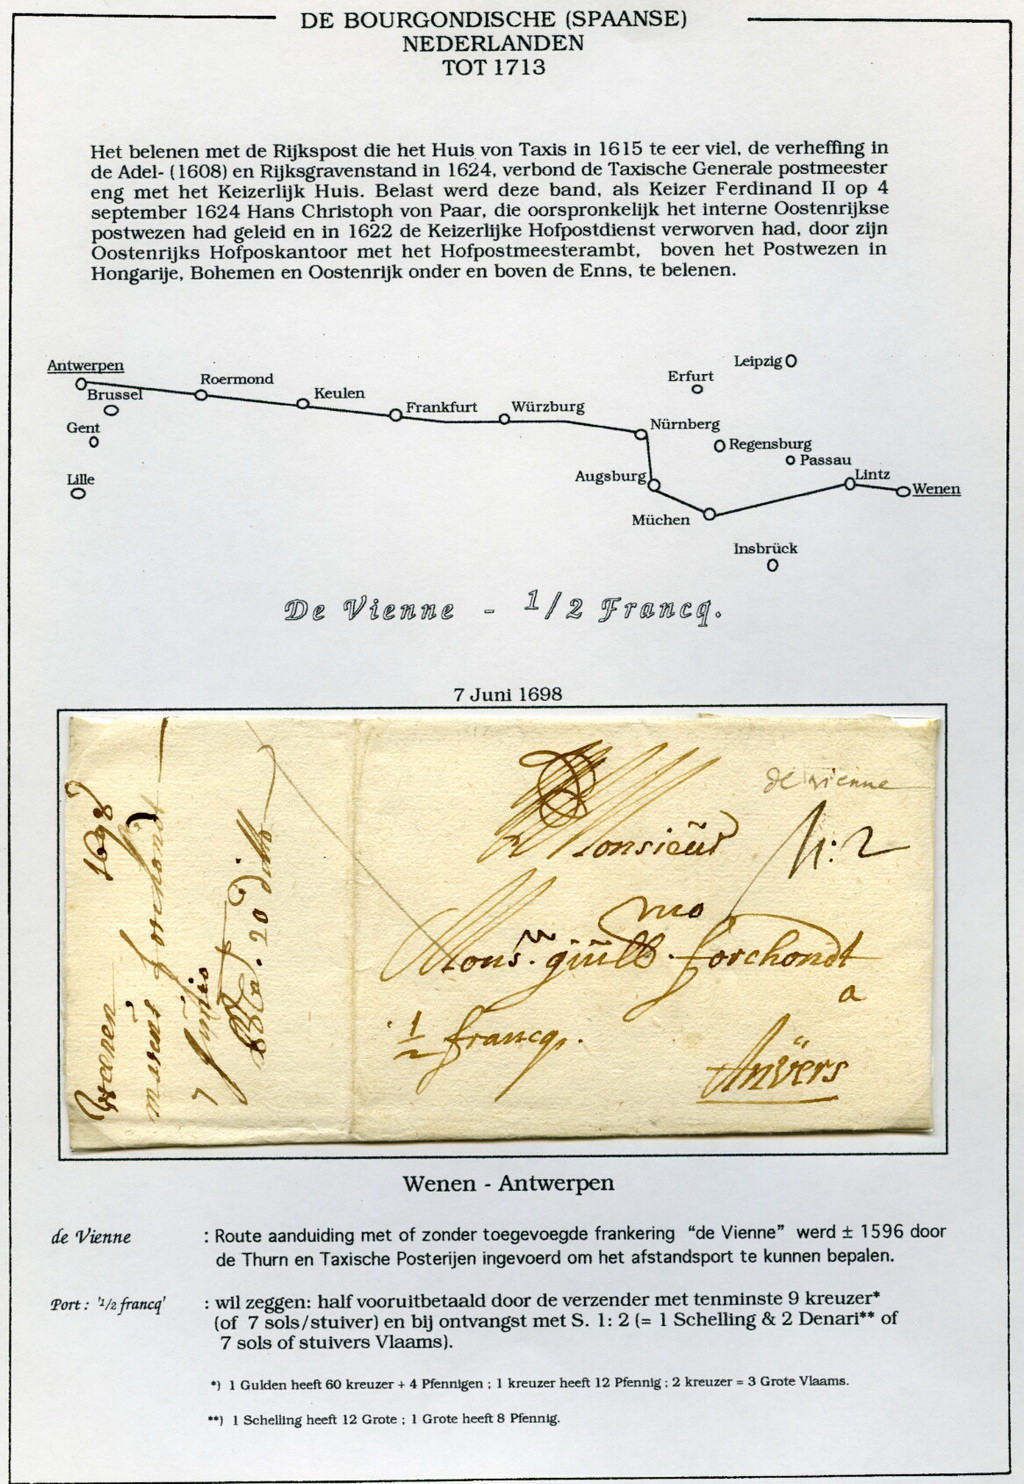 DE BOURGONDISCHE (SPAANSE)
NEDERLANDEN
TOT 1713
Het belenen met de Rijkspost die het Huis von Taxis in 1615 te eer viel, de verheffing in
de Adel- (1608) en Rijksgravenstand in 1624, verbond de Taxische Generale postmeester
eng met het Keizerlijk Huis. Belast werd deze band, als Keizer Ferdinand II op 4
september 1624 Hans Christoph von Paar, die oorspronkelijk het interne Oostenrijkse
postwezen had geleid en in 1622 de Keizerlijke Hofpostdienst verworven had, door zijn
Oostenrijks Hofposkantoor met het Hofpostmeesterambt, boven het Postwezen in
Hongarije, Bohemen en Oostenrijk onder en boven de Enns, te belenen.
Antwerpen
Brussel
Gent
Lille
Roermond
Keulen
Frankfurt
Würzburg
Nürnberg
Erfurt
Leipzig
Regensburg
Passau
Augsburg
Müchen
Lintz
Wenen
Insbrück
De Vienne - 1/2 Francq.
7 Juni 1698
Weenen 1698
forchondt
7 Junio
20 ditto
de vienne
Monsieür
1: 2
Monsr. güill mo forchondt
a
1/2 francq.
Anvërs
Wenen - Antwerpen
de Vienne : Route aanduiding met of zonder toegevoegde frankering “de Vienne” werd ± 1596 door
de Thurn en Taxische Posterijen ingevoerd om het afstandsport te kunnen bepalen.
Port : '1/2 francq' : wil zeggen: half vooruitbetaald door de verzender met tenminste 9 kreuzer*
(of 7 sols/stuiver) en bij ontvangst met S. 1: 2 (= 1 Schelling & 2 Denari** of
7 sols of stuivers Vlaams).
*) 1 Gulden heeft 60 kreuzer + 4 Pfennigen ; 1 kreuzer heeft 12 Pfennig ; 2 kreuzer = 3 Grote Vlaams.
**) 1 Schelling heeft 12 Grote ; 1 Grote heeft 8 Pfennig.